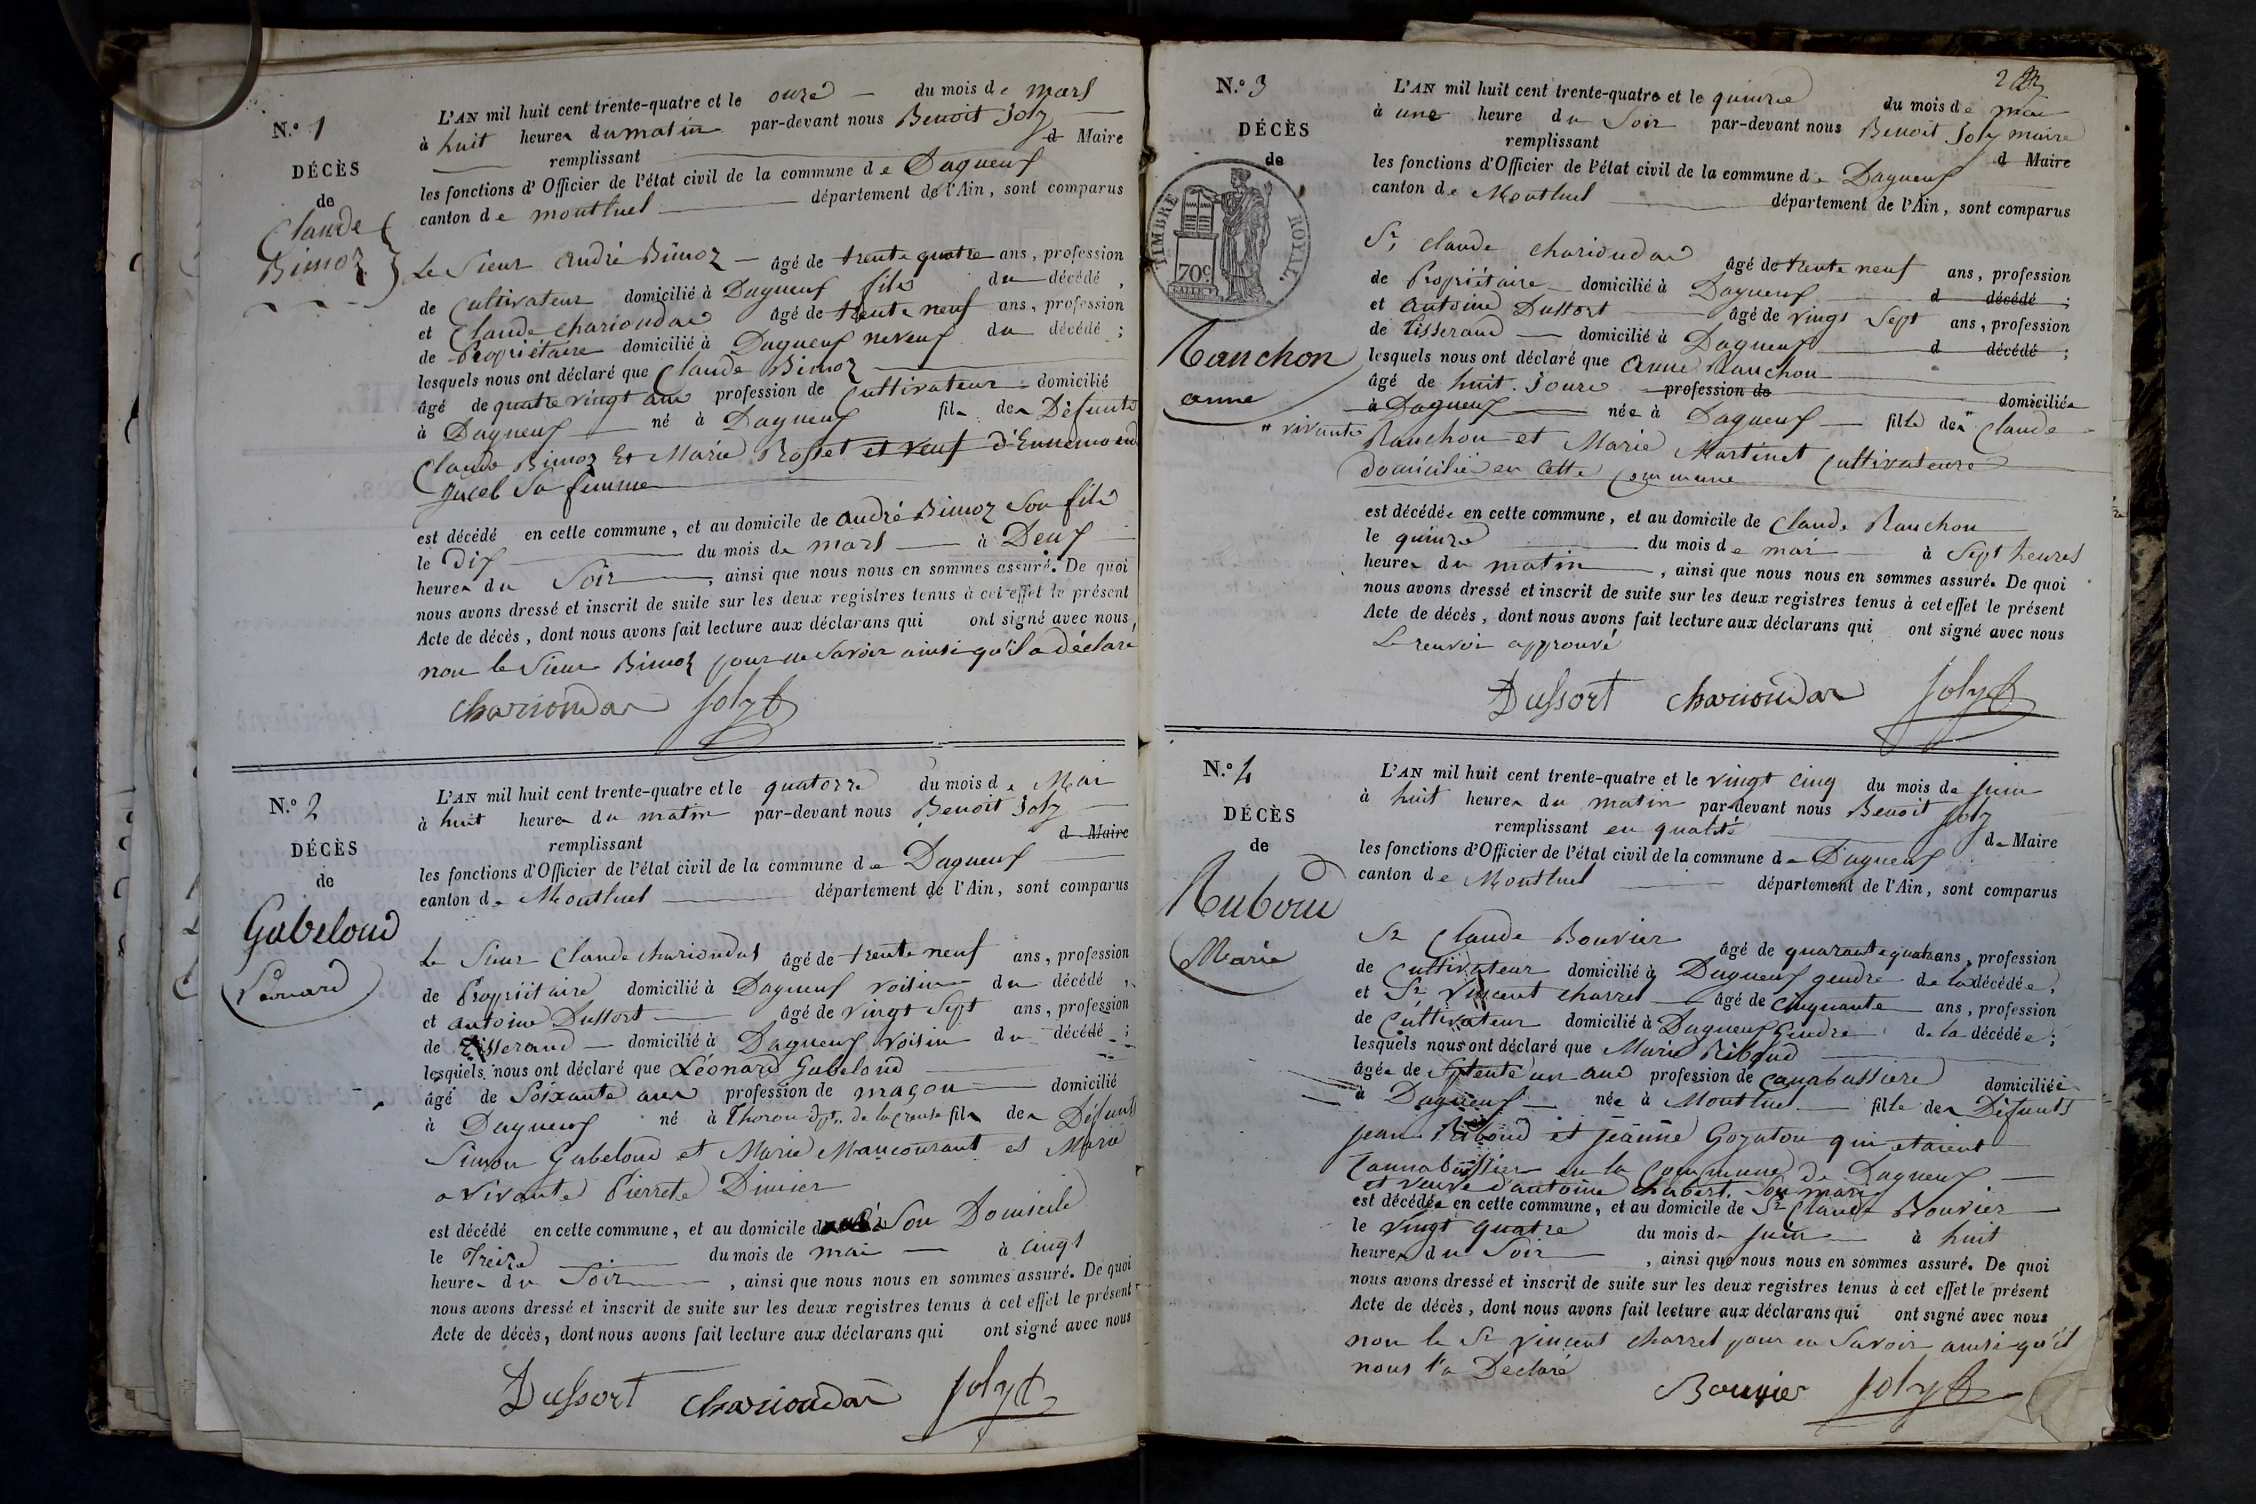 N.° 1
DÉCÈS
de
Claude
Bimoz
L'AN mil huit cent trente-quatre et le onze du mois de mars
à huit heures du matin par-devant nous Benoit Joly
remplissant d Maire
les fonctions d'Officier de l'état civil de la commune de Dagneux
canton de montluel département de l'Ain, sont comparus
Le Sieur André Bimoz âgé de trente quatre ans, profession
de Cultivateur domicilié à Dagneux fils du décédé,
et Claude chariondas âgé de trente neuf ans, profession
de Propriétaire domicilié à Dagneux neveux du décédé;
lesquels nous ont déclaré que Claude Bimoz
âgé de quatre vingt ans profession de Cultivateur domicilié
à Dagneux né à Dagneux fils des Défunts
Claude Bimoz Et Marie Rosset et veuf d'Ennemonde
sa femme
est décédé en cette commune, et au domicile de andré Bimoz Son fils
le Dix du mois de mars à Deux
heures du Soir, ainsi que nous nous en sommes assuré. De quoi
nous avons dressé et inscrit de suite sur les deux registres tenus à cet effet le présent
Acte de décès, dont nous avons fait lecture aux déclarans qui ont signé avec nous,
non le Sieur Bimoz pour ne Savoir ainsi qu'il a déclaré
chariondas Joly
N.° 2
DÉCÈS
de
Gabeloud
Léonard
L'AN mil huit cent trente-quatre et le quatorze du mois de Mai
à huit heures du matin par-devant nous Benoit Joly
remplissant d Maire
les fonctions d'Officier de l'état civil de la commune de Dagneux
canton de Montluel département de l'Ain, sont comparus
Le Sieur Claude chariondas âgé de trente neuf ans, profession
de Propriétaire domicilié à Dagneux voisin du décédé,
et antoine Dussort âgé de vingt Sept ans, profession
de Tisserand domicilié à Dagneux voisin du décédé;
lesquels nous ont déclaré que Léonard Gabeloud
âgé de Soixante ans profession de maçon domicilié
à Dagneux né à Thoron dpt. de la Creuse fils des Défunts
Simon Gabeloud et Marie Maucourant et Marié
a vivante Pierrete Dimier
est décédé en cette commune, et au domicile de Son Domicile
le Treize du mois de mai à cinq
heures du Soir, ainsi que nous nous en sommes assuré. De quoi
nous avons dressé et inscrit de suite sur les deux registres tenus à cet effet le présent
Acte de décès, dont nous avons fait lecture aux déclarans qui ont signé avec nous
Dussort chariondas Joly
2
N.° 3
DÉCÈS
de
TIMBRE ROYAL
70c
Ranchon
anne
L'AN mil huit cent trente-quatre et le quinze du mois de mai
à une heure du Soir par-devant nous Benoit Joly maire
remplissant d Maire
les fonctions d'Officier de l'état civil de la commune de Dagneux
canton de Montluel département de l'Ain, sont comparus
Sr. claude chariondas âgé de trente neuf ans, profession
de Propriétaire domicilié à Dagneux d décédé;
et antoine Dussort âgé de vingt Sept ans, profession
de Tisserand domicilié à Dagneux d décédé;
lesquels nous ont déclaré que anne Ranchon
âgé de huit Jours profession de domiciliée
à Dagneux née à Dagneux fille des " Claude
" vivants Ranchon et Marie Martinet Cultivateurs
domicilié en Cette Commune
est décédée en cette commune, et au domicile de Claude Ranchon
le quinze du mois de mai à Sept heures
heures du matin, ainsi que nous nous en sommes assuré. De quoi
nous avons dressé et inscrit de suite sur les deux registres tenus à cet effet le présent
Acte de décès, dont nous avons fait lecture aux déclarans qui ont signé avec nous
Le renvoi approuvé
Dussort chariondas Joly
N.° 4
DÉCÈS
de
Marie
L'AN mil huit cent trente-quatre et le vingt cinq du mois de juin
à huit heures du matin par-devant nous Benoit Joly
remplissant en qualité de Maire
les fonctions d'Officier de l'état civil de la commune de Dagneux
canton de Montluel département de l'Ain, sont comparus
Sr Claude Bouvier âgé de quarante quatre ans, profession
de Cultivateur domicilié à Dagneux gendre de la décédée,
et Sr Vincent charrel âgé de Cinquante ans, profession
de Cultivateur domicilié à Dagneux Gendre de la décédée;
lesquels nous ont déclaré que Marie Riboud
âgée de Septente un ans profession de Canabassiere domiciliée
à Dagneux née à Montluel fille des Défunts
jean Riboud et jeanne Gozaton qui etaient
Cannabassier en la Commune de Dagneux
et veuve d'antoine chabert Son mari
est décédée en cette commune, et au domicile de Sr Claude Bouvier
le Vingt quatre du mois de juin à huit
heures du Soir, ainsi que nous nous en sommes assuré. De quoi
nous avons dressé et inscrit de suite sur les deux registres tenus à cet effet le présent
Acte de décès, dont nous avons fait lecture aux déclarans qui ont signé avec nous
non le Sr Vincent charrel pour en Savoir ainsi qu'il
nous l'a Declaré
Bouvier Joly